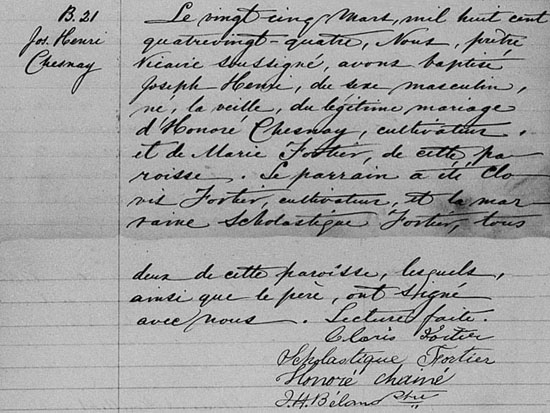 B. 21
Jos. Henri
Chesnay
Le vingt-cinq Mars, mil huit cent
quatrevingt-quatre, Nous, prêtre
Vicaire soussigné, avons baptisé
Joseph Henri, du sexe masculin,
né, la veille, du légitime mariage
d'Honoré Chesnay, cultivateur,
et de Marie Fortier, de cette pa-
roisse. Le parrain a été Clo-
vis Fortier, cultivateur, et la mar-
raine Scholastique Fortier, tous
deux de cette paroisse, lesquels,
ainsi que le père, ont signé
avec nous. Lecture faite.
Clovis Fortier
Scholastique Fortier
Honoré chainé
J. H. Béland Ptre